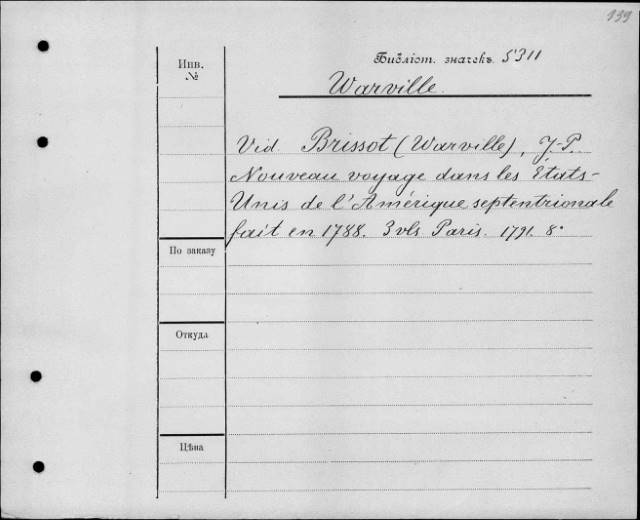 139
Библіот. значекъ 5311
Инв.
№
Warville.
Vid. Brissot (Warville), J-P.
Nouveau voyage dans les États-
Unis de l'Amérique septentrionale
fait en 1788. 3 vls Paris. 1791. 8°
По заказу
Откуда
Цѣна